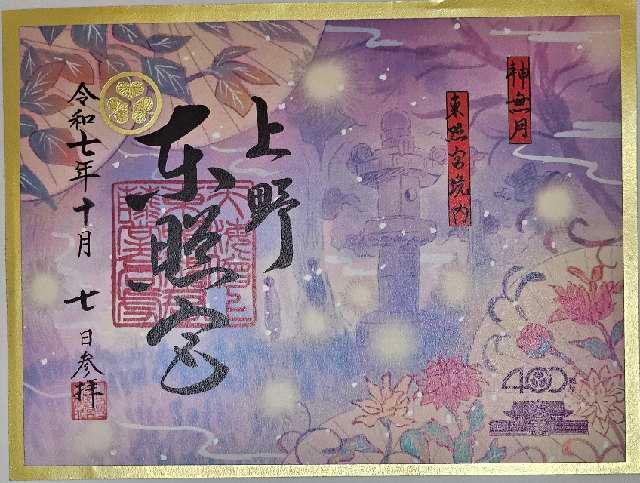 神無月
東照宮境内
上野
東照宮
令和七年十月七日参拝
400年